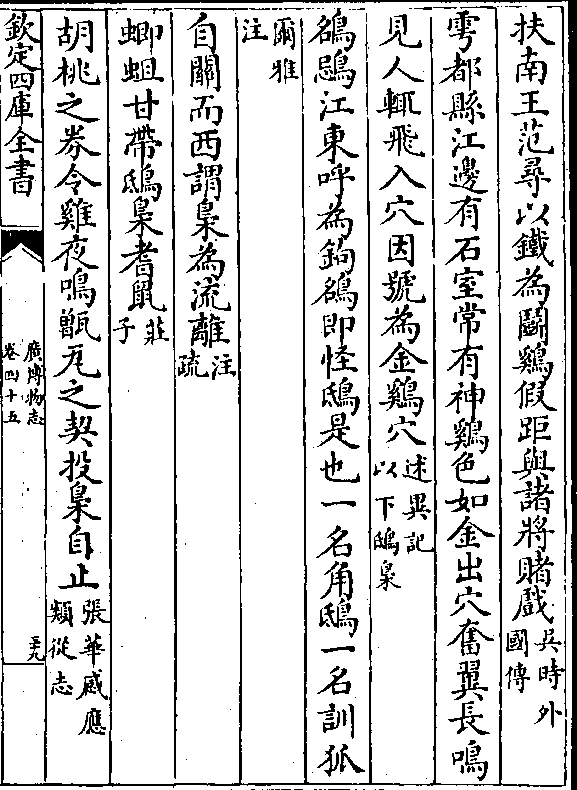 扶南王范尋以鐵為鬭鷄假距與諸將賭戲吳時外國傳
雩都縣江邊有石室常有神鷄色如金出穴奮翼長鳴
見人輒飛入穴因號為金鷄穴述異記以下鴟梟
鵅鶹江東呼為鉤鵅即怪鴟是也一名角鴟一名訓狐
爾雅注
自關而西謂梟為流離注疏
蝍蛆甘帶鴟梟耆鼠莊子
胡桃之券令雞夜鳴甑瓦之契投梟自止張華感應類從志
欽定四庫全書
廣博物志
卷四十五